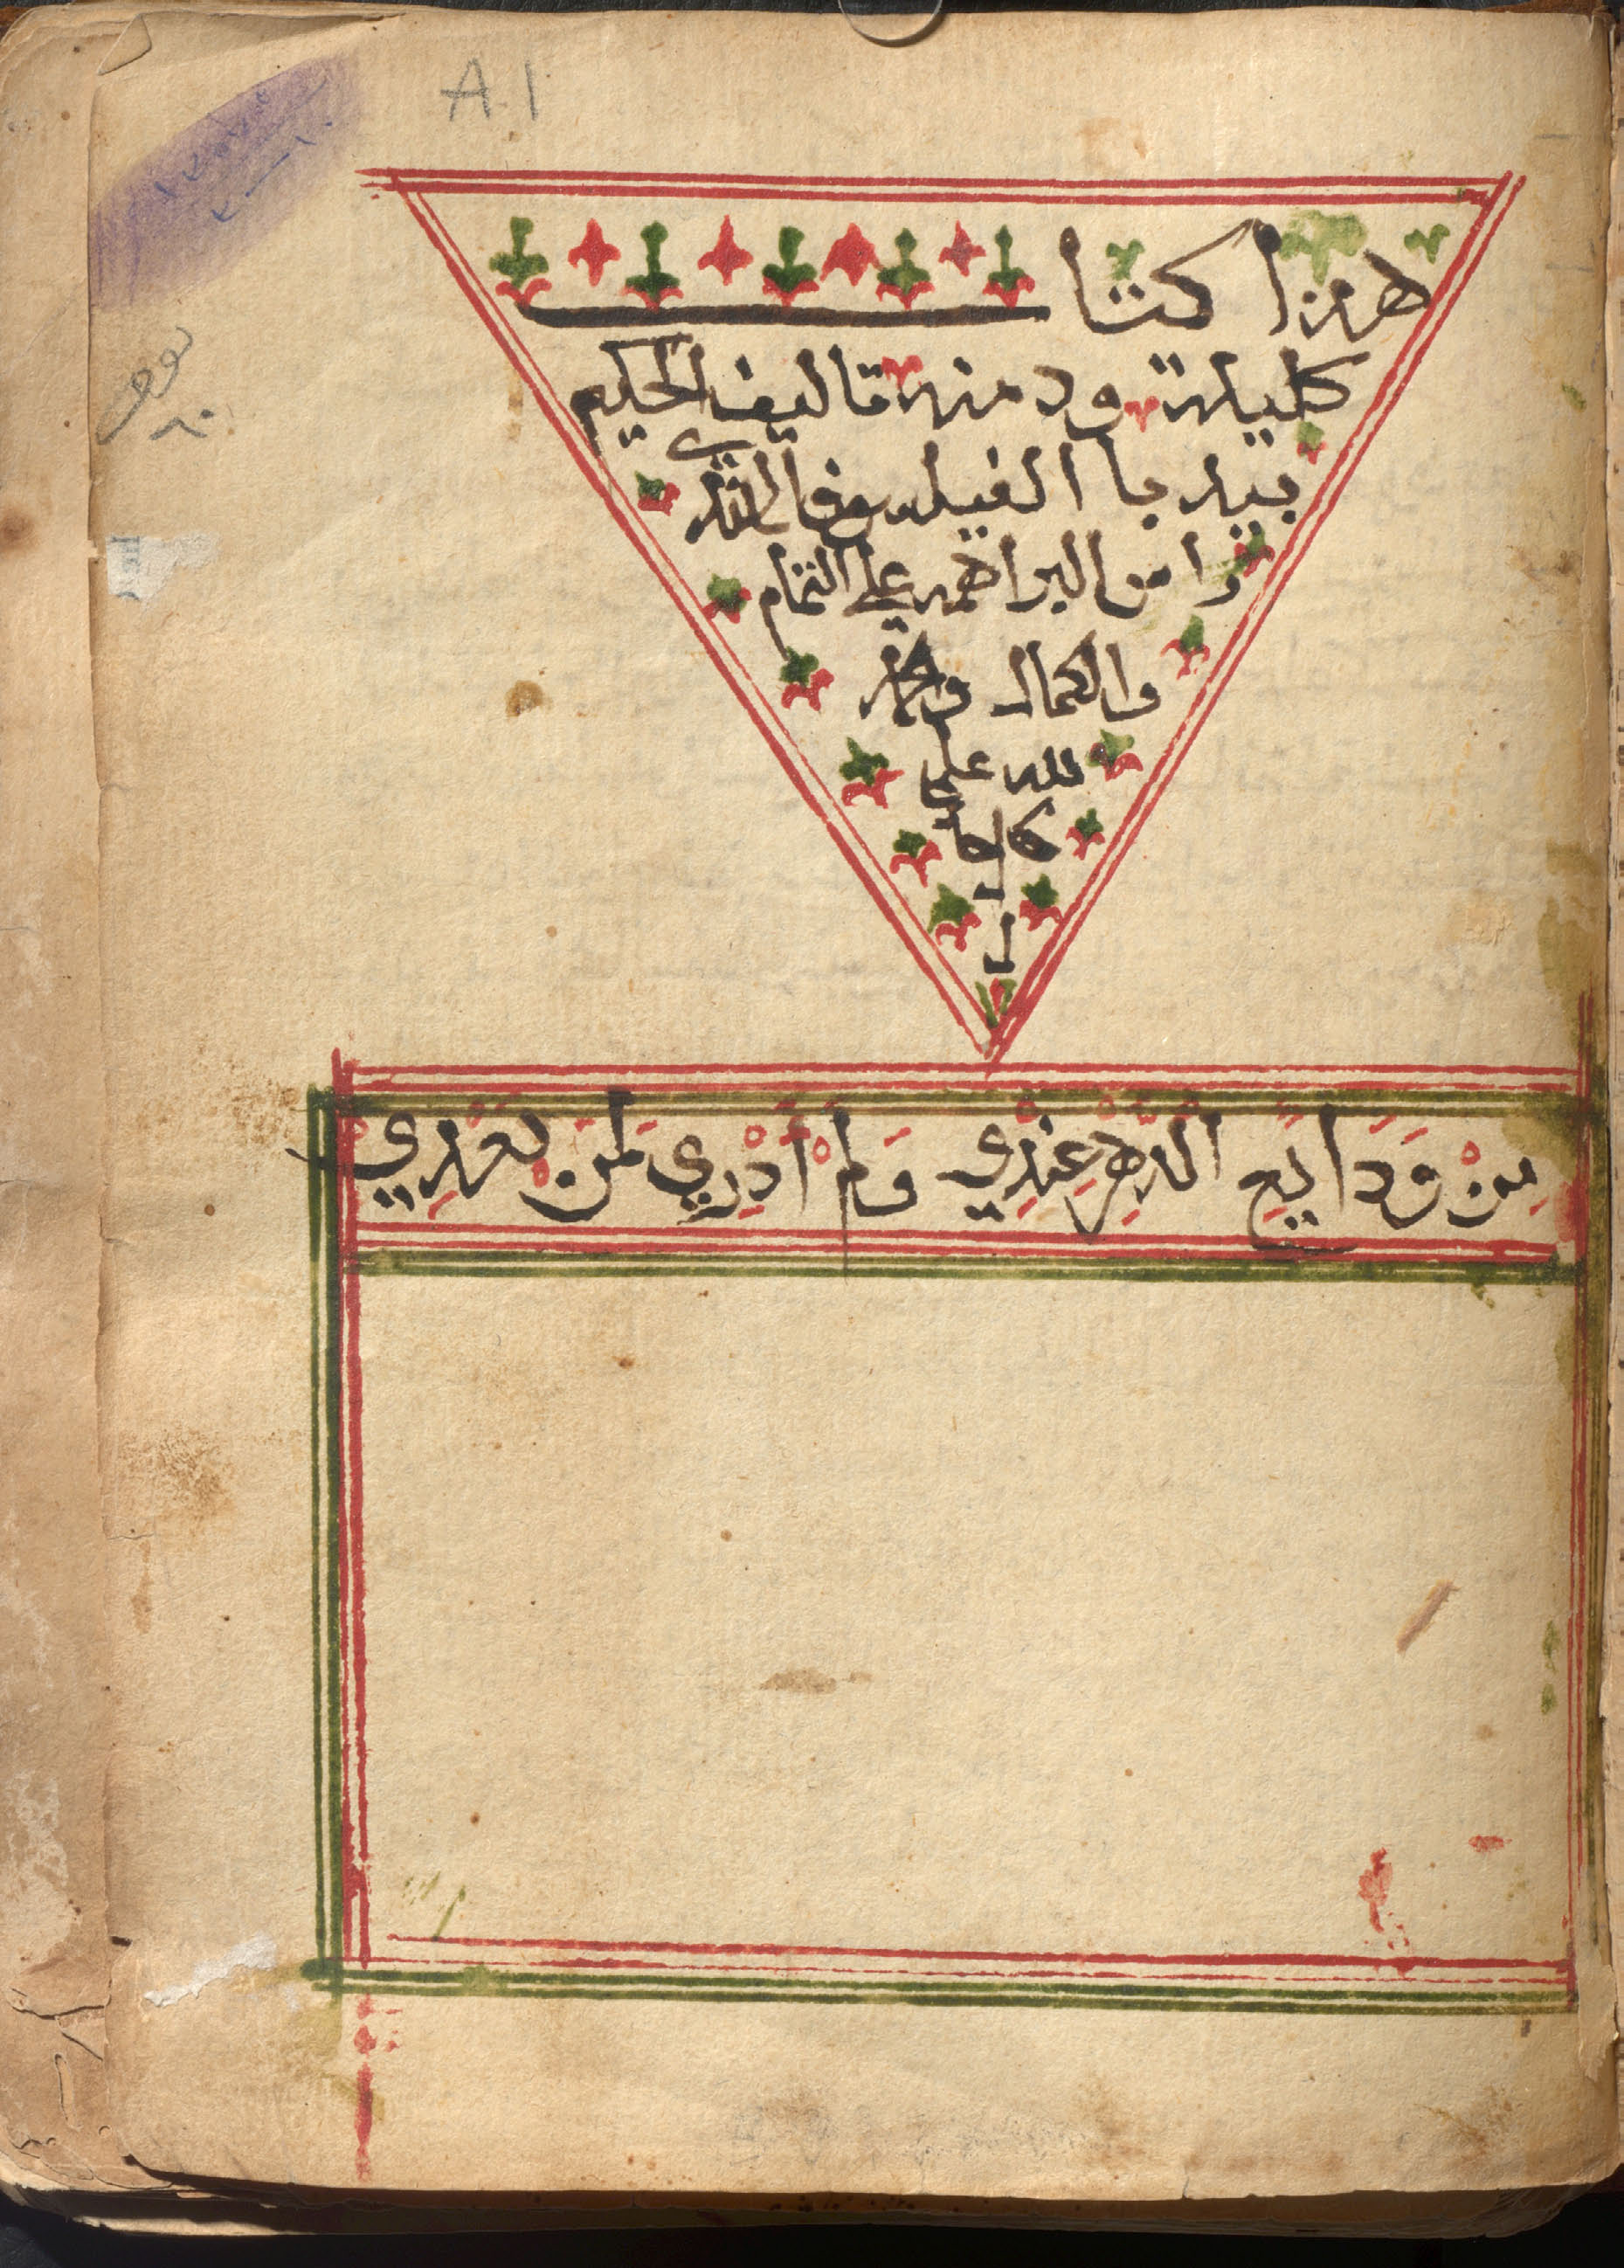 A.1
هذا كتاب
كليلة ودمنه تاليف الحكيم
بيدبا الفيلسوف الهندي
را س البراهمه علي التمام
والكمال والحمد
لله علي
كل حا
ل
مِنْ وَدَايِعِ الدَّهْرِ عِنْدِي وَلَمْ أَدْرِي لِمَنْ بَعْدِي